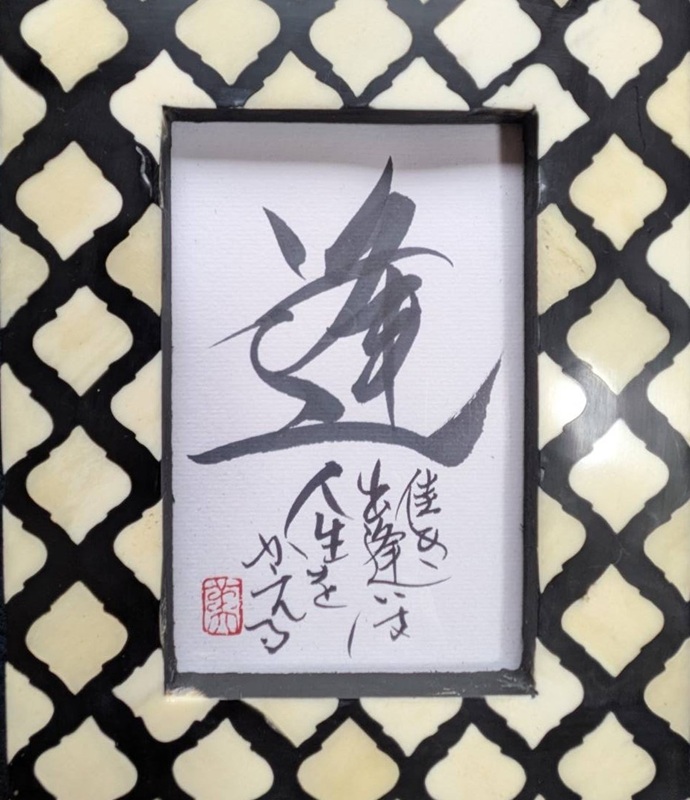 逢
佳き
出逢いは
人生を
かえる